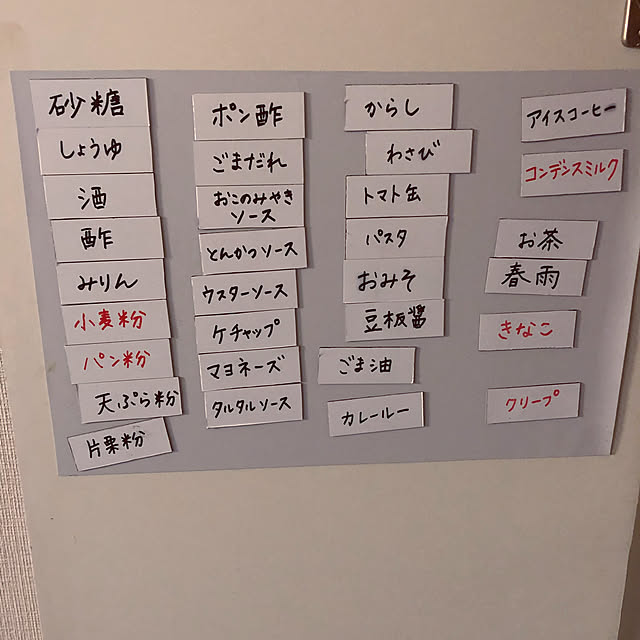 砂糖
しょうゆ
酒
酢
みりん
小麦粉
パン粉
天ぷら粉
片栗粉
ポン酢
ごまだれ
おこのみやき
ソース
とんかつソース
ウスターソース
ケチャップ
マヨネーズ
タルタルソース
からし
わさび
トマト缶
パスタ
おみそ
豆板醤
ごま油
カレールー
アイスコーヒー
コンデンスミルク
お茶
春雨
きなこ
クリープ